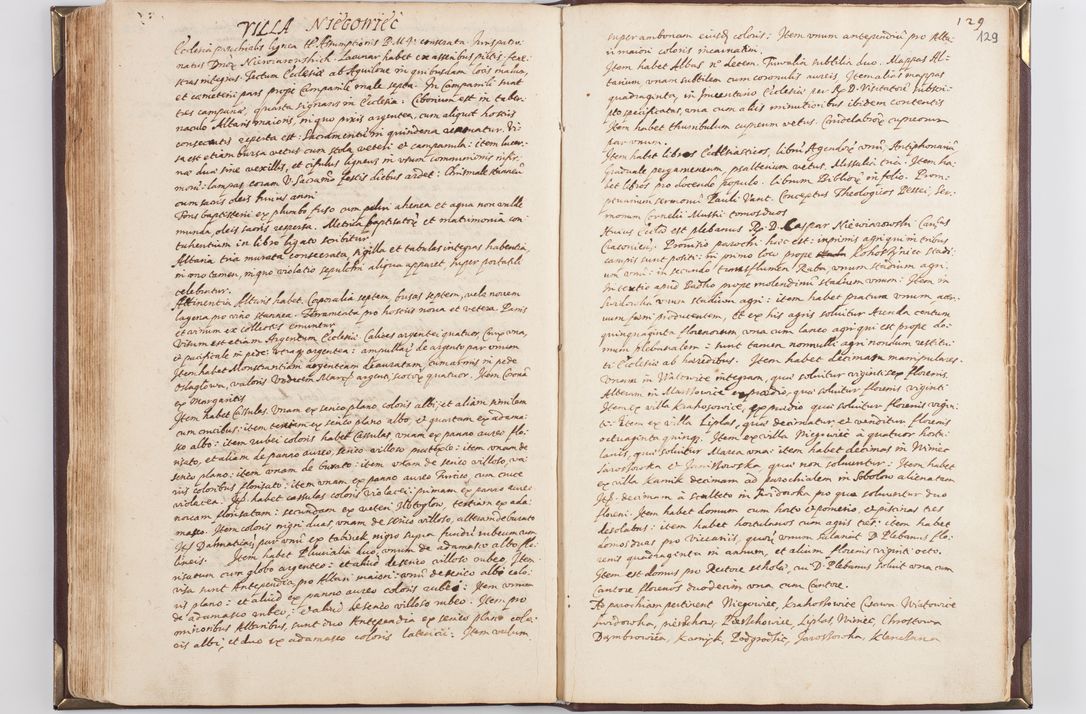 VILLA Niegowiec
Ecclesia parochialis lignea tt. Assumptionis B.M.V. consecrata. Iuris patro-
natus Dnor Niewiarowskich. Laquear habet ex asseribus pictis fene-
stras integras. Tectum Ecclesiæ ab Aquilone in quibusdam locis malum,
et cæmeterii pars prope Campanile male septa. In Campanili sunt
tres campanæ, quarta signans in Ecclesia. Ciborium est in taber-
naculo Altaris maioris, in quo pixis argentea, cum aliquot hostiis
consecratis reperta est. Sacramentū in quindena renovatur. Vi-
sa est etiam bursa vetus cum stola veteri et campanula: item lucer-
næ duæ sine vexillis, et cifulus ligneus in usum communionis infir-
morū: lampas coram V. Sacramō festis diebus ardet: Chrismale stanneū
cum sacris oleis huius anni
Fons baptisterii ex plumbo fuso cum pelvi ahenea et aqua non valde
munda, oleis sacris respersa. Metrica baptisatorū et matrimonia con-
trahentium in libro ligato scribitur.
Altaria tria murata consecrata, sigilla et tabulas integras habentia,
in uno tamen, in quo violatio sepulchri aliqua apparet, super portatili
celebratur.
Attinentia Altaris habet. Corporalia septem, bursas septem, vela novem
lagena pro vino stannea. Ferramenta pro hostiis nova et vetera. Panis
et vinum ex collectis emuntur
Visum est etiam Argentum Ecclesiæ. Calices argentei quatuor, Crux una,
et pacificale in pede: utraq argentea: ampullarū de argento par unum
Item habet Monstrantiam argenteam deauratam, cum armis in pede
Ostaglowa, valoris undecim Marcarū argenti, scotorū quatuor. Item Coronā
ex Margaritis
Item habet Casulas. Unam ex serico plano, coloris albi, et aliam similem
cum crucibus: item tertiam ex serico plano albo, et quartam ex adama-
sco albo: item rubei coloris habet Casulas unam ex panno aureo flo-
risato, et aliam de panno aureo, serico villoso prætexto: item unam de
serico plano: item unam de burato: item unam de serico villoso, va-
riis coloribus florisato: item unam ex panno aureo Turtico cum cruce
violacea. Itē habet casulas coloris violacei: primam ex panno aureo
novam florisatam: secundam ex veteri ..., tertiam ex ada-
masco. Item coloris nigri duas, unam de serico villoso, alteram de burato
Itē Dalmaticarū par unū ex tabinek nigro supra fundū rubeum cum
lineis. Item habet Pluvialia duo, unum de adamasco albo flo-
risatum cum globo argenteo: et aliud de serico villoso rubeo. Item
visa sunt Antependia pro Altari maiori: unū de serico albo colo-
ris plano: et aliud ex panno aureo coloris rubei: Item unum
de adamasco rubeo: et aliud de serico villoso rubeo. Item pro
minoribus Altaribus, sunt duo Antependia ex serico plano colo-
ris albi, et duo ex adamasco coloris latericii: Item velum
129
129
super ambonam eiusdē coloris: Item unum antependiū pro Alta-
ri maiori coloris incarnatini.
Item habet Albas nº decem. Tuvalia subtilia duo. Mappas Al-
tarium, unam subtilem cum coronulis aureis. Item alias mappas
quadraginta, in Inventario Ecclesiæ per R.D. Visitatorē subscri-
pto specificatas, una cum aliis minutioribus ibidem contentis
Item habet thuribulum cupreum vetus. Candelabrorū cupreorum
par unum.
Item habet libros Ecclesiasticos, librū Agendorū unū, Antiphonariū
Graduale pergameneum, psalterium vetus. Missalia tria. Item ha-
bet libros pro docendo populo. librum Bibliorū in folio. Prom-
ptuarium sermonū Pauli Vant. Conceptus Theologicos Bessei, Ser-
monum Cornelii Mussi tomos duos
Huius Ecclæ est plebanus R.D. Caspar Niewiarowski Canōs
Cracoviēn. Provisio parochi hæc est: inprimis agri qui in tribus
campis sunt positi: in primo loco prope Kohoznice stadi-
um unū: in secundo trans flumen Raba unum stadium agri.
In tertio apud Badko prope molendinū stadium unum: Item in
Swidowka unum stadium agri: item habet pratum unum, aer-
uum fœni producentem, et ex his agris solvitur Arenda centum
quinquaginta florenorum una cum laneo agri qui est prope do-
mum plebanalem: sunt tamen nonnulli agri nondum restitu-
ti Ecclesiæ ab hæredibus. Item habet decimam manipularem
Unam in Wiatowice integram, quæ solvitur viginti sex florenis.
Alteram in Marszowice ex prædio, quæ solvitur florenis viginti
Item ex villa Krakoszowice, ex prædio quæ solvitur florenis vigin-
ti: Item ex villa Liplas, quæ decimatur et venditur florenis
octuaginta quinq. Item ex villa Niegowiec à quatuor horti-
lanis, quæ solvitur Marca una: item habet decimas in Niwier
Jaroszowka et Jaroszowka, quæ non solvuntur: Item habet
ex villa Kamik decimam ad parochialem in Sobolow alienatam
Itē decimam à sculteto in Swidowka pro qua solvuntur duo
floreni. Item habet domum cum horto expomerio et piscinas tres
desolatas: item habet hortulanos cum agris tres: item habet
domos duas pro vicariis, quorū unum salariat D. Plebanus flo-
renis quadraginta in annum, et alium florenis viginti octo.
Item est domus pro Rectore scholæ, cui D. Plebanus solvit una cum
Cantore florenos duodecim una cum Cantore.
Ad parochiam pertinent Niegowiec, Krakoszowice Czawa Wiatowice
Swidowka, pierzchow, Pierzchowiec, Liplas, Niwiec, Chrostowa
Dąmbrowica, Kamyk, Podgrodzie, Jaroszowka, Klęczana